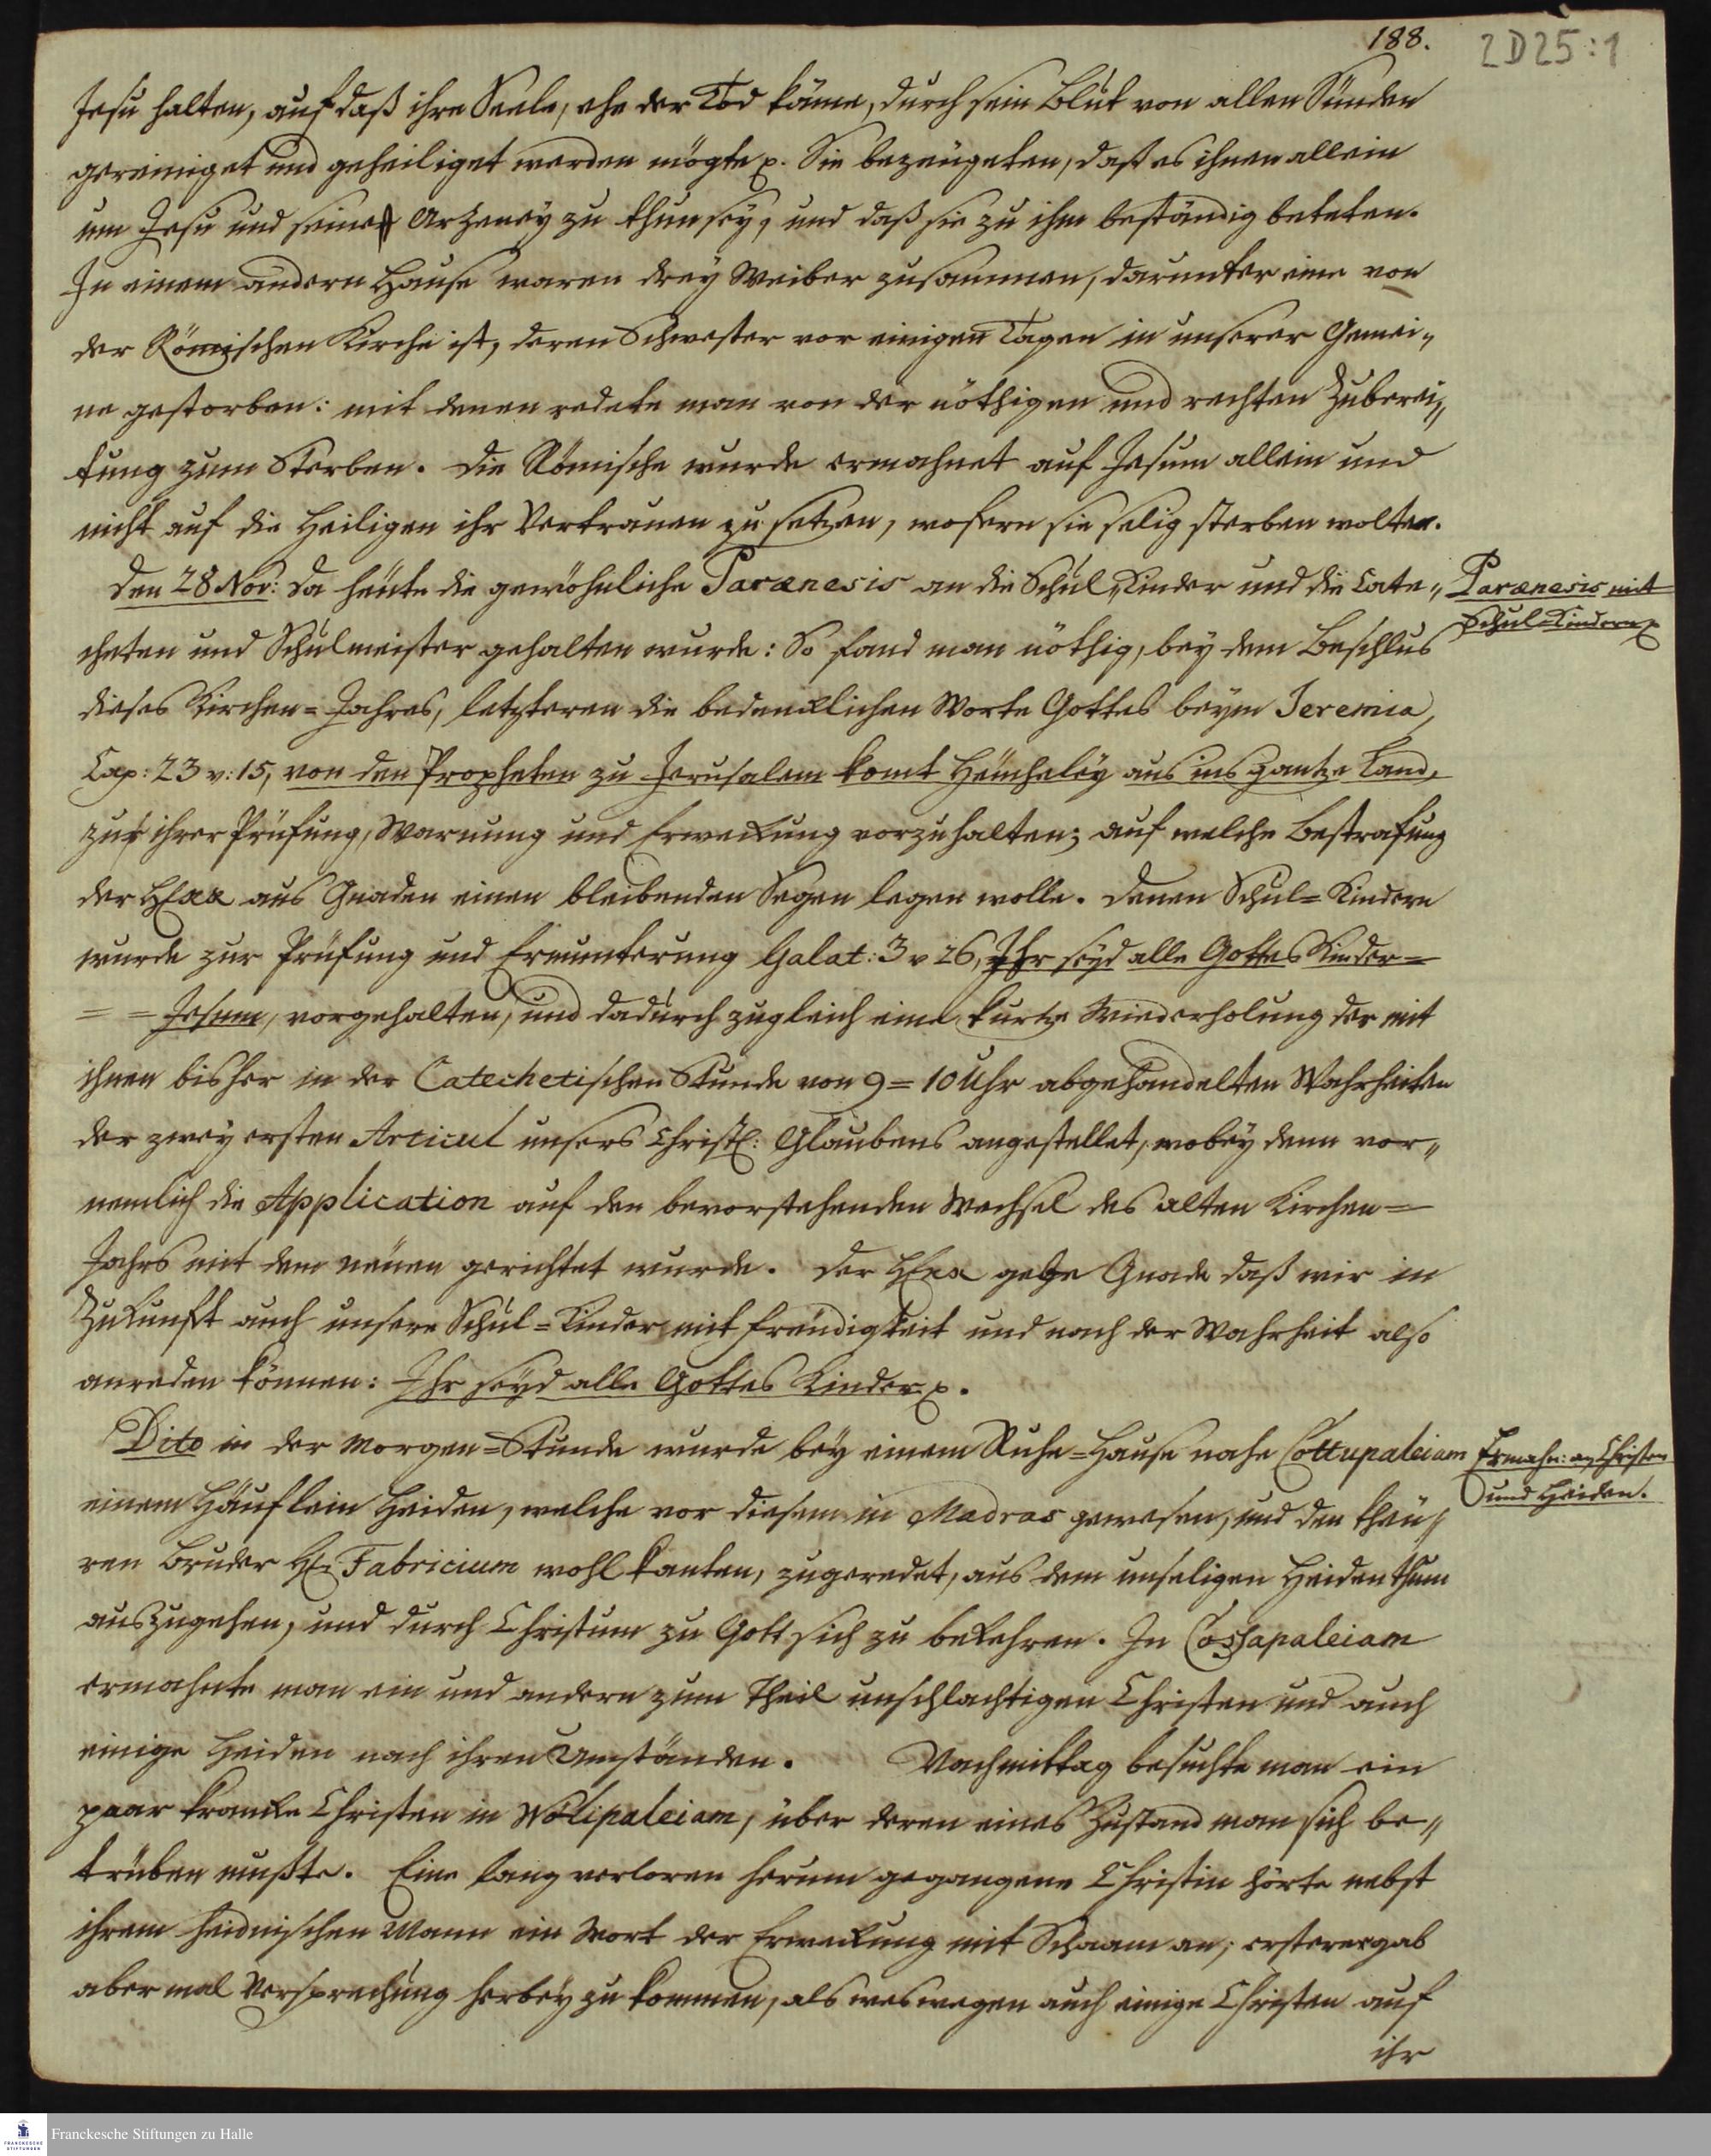 188.
2 D 25 : 1
Jesu halten, auf daß ihre Seele, ehe der Tod käme, durch sein Blut von allen Sünden
gereiniget und geheiliget werden mögte p. Sie bezeugeten, daß es ihnen allein
um Jesu und seine Arzeney zu thun sey, und daß sie zu ihm beständig beteten.
In einem andern Hause waren drey Weiber zusammen, darunter eine von
der Römischen Kirche ist, deren Schwester vor einigen Tagen in unserer Gemei„
ne gestorben: mit denen redete man von der nöthigen und rechten Zuberei„
tung zum Sterben. Die Römische wurde ermahnet auf Jesum allein und
nicht auf die Heiligen ihr Vertrauen zu setzen, wofern sie selig sterben wolte.
Den 28 Nov: Da heute die gewöhnliche Parænesis an die Schul„Kinder und die Cate„
Parænesis mit
Schul-Kindern p
cheten und Schulmeister gehalten wurde: So fand man nöthig, bey dem Beschlus
dieses Kirchen=Jahres, letzteren die bedencklichen Worte Gottes beym Jeremia,
Cap: 23 v: 15, von den Propheten zu Jerusalem komt Heucheley aus ins gantze Land,
zu ihrer Prüfung, Warnung und Erweckung vorzuhalten; auf welche Bestrafung
der HErr aus Gnaden einen bleibenden Segen legen wolle. Denen Schul=Kindern
wurde zur Prüfung und Ermunterung Galat: 3 v 26, Ihr seyd alle Gottes Kinder=
= = Jesum, vorgehalten, und dadurch zugleich eine kurtze Wiederholung der mit
ihnen bisher in der Catechetischen Stunde von 9=10 Uhr abgehandelten Wahrheiten
der zwey ersten Articul unsers Christl: Glaubens angestellet, wobey denn vor„
nemlich die Application auf den bevorstehenden Wechsel des alten Kirchen=
Jahrs mit dem neuen gerichtet wurde. Der HErr gebe Gnade daß wir in
Zukunft auch unsere Schul=Kinder mit Freudigkeit und nach der Wahrheit also
anreden können: Ihr seyd alle Gottes Kinder p.
Dito in der Morgen=Stunde wurde bey einem Ruhe=Hause nahe Cottupaleiam
Ermahn: an Christen
und Heiden.
einem Häuflein Heiden, welche vor diesem in Madras gewesen, und den theu„
ren Bruder Hl: Fabricium wohl kanten, zugeredet, aus dem unseligen Heidenthum
auszugehen, und durch Christum zu Gott sich zu bekehren. In Cossapaleiam
ermahnte man ein und andern zum Theil unschlachtigen Christen und auch
einige Heiden nach ihren Umständen. Nachmittag besuchte man ein
paar krancke Christen in Wölipaleiam, über deren eines Zustand man sich be„
trüben mußte. Eine lang verloren herum gegangene Christin hörte nebst
ihrem heidnischen Mann ein Wort der Erweckung mit Schaam an; erstere gab
aber mal Versprechung herbey zu kommen, als weswegen auch einige Christen auf
ihr
Franckesche Stiftungen zu Halle